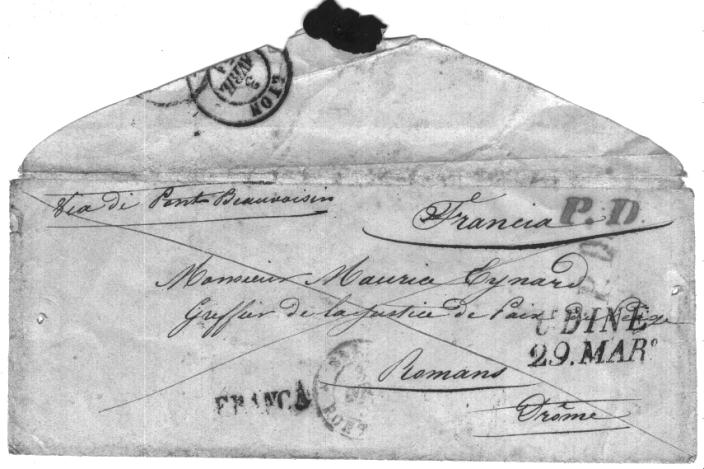 3
AVRIL
LYON
Via di Pont Beauvoisin
Francia
P.D.
P.D.
Monsieur Maurice Eynard
Greffier de la justice de Paix
UDINE
29.MARº
Romans
FRANCA
PONT
Drôme